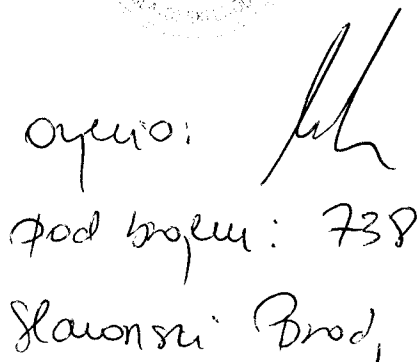 Ocjenio:
pod brojem: 738
Slavonski Brod,